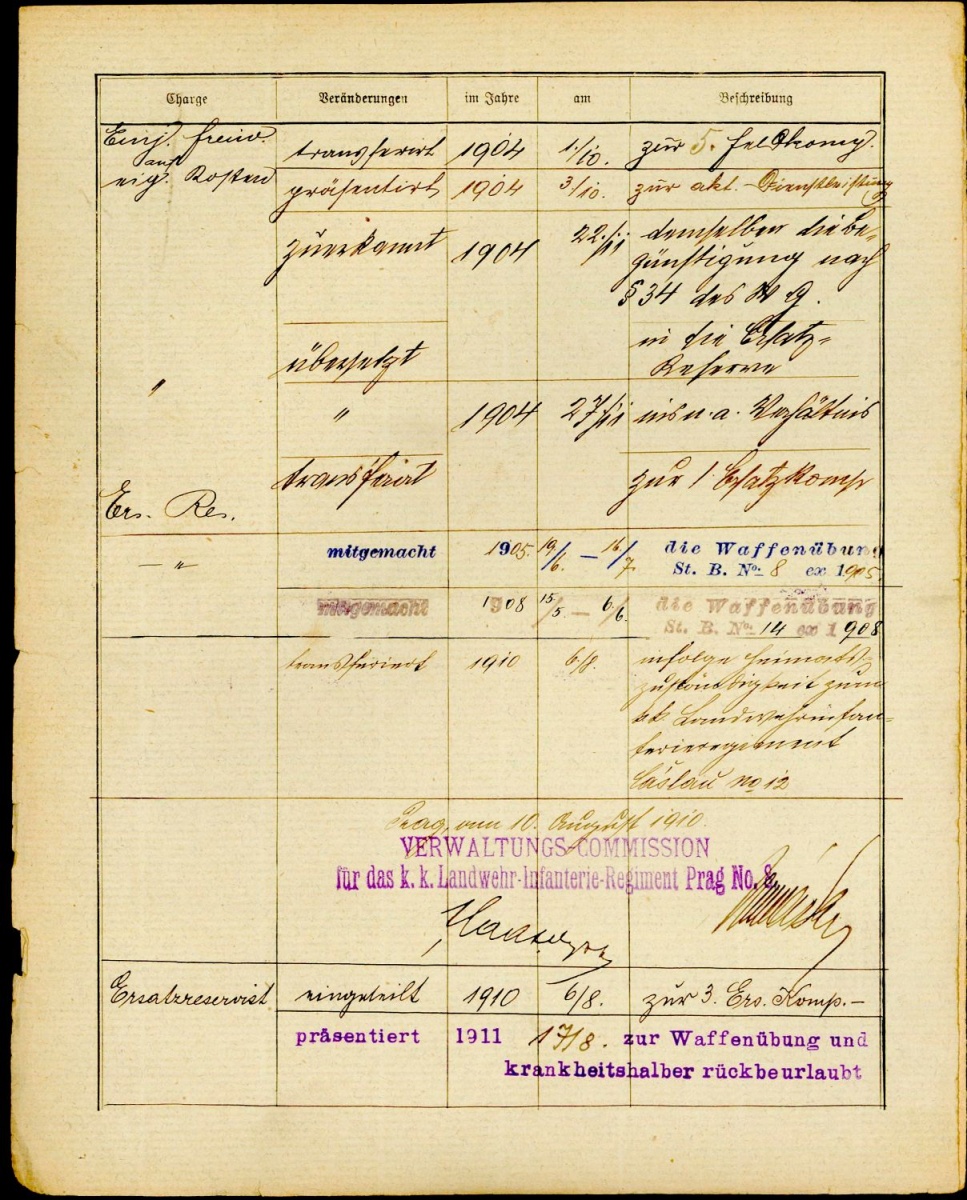 Charge Veränderungen im Jahre am Beschreibung
Einj. freiw. transferirt 1904 1./10. zur 5. Feldkomp.
auf
eig. Kosten präsentirt 1904 3/10. zur akt. Dienstleistung
zuerkannt 1904 22./11 demselben die Be-
günstigung nach
§ 34 des W G.
übersetzt in die Ersatz-
Reserve
"
" 1904 27/11 ins n. a. Verhältnis
transferirt zur 1 Ersatzkomp
Ers. Res.
— " — mitgemacht 1905. 19/6. — 16/7. die Waffenübung
St. B. No. 8 ex 1905
mitgemacht 1908 15/5 — 6/6. die Waffenübung
St. B. No. 14 ex 1908
transferiert 1910 6/8. infolge Heimats-
zuständigkeit zum
k.k. Landwehrinfan-
terieregiment
Cáslau No 12
Prag, am 10. August 1910.
VERWALTUNGS-COMMISSION
für das k. k. Landwehr-Infanterie-Regiment Prag No. 8
Ersatzreservist eingeteilt 1910 6/8. zur 3. Ers. Komp.—
präsentiert 1911 17/8. zur Waffenübung und
krankheitshalber rückbeurlaubt